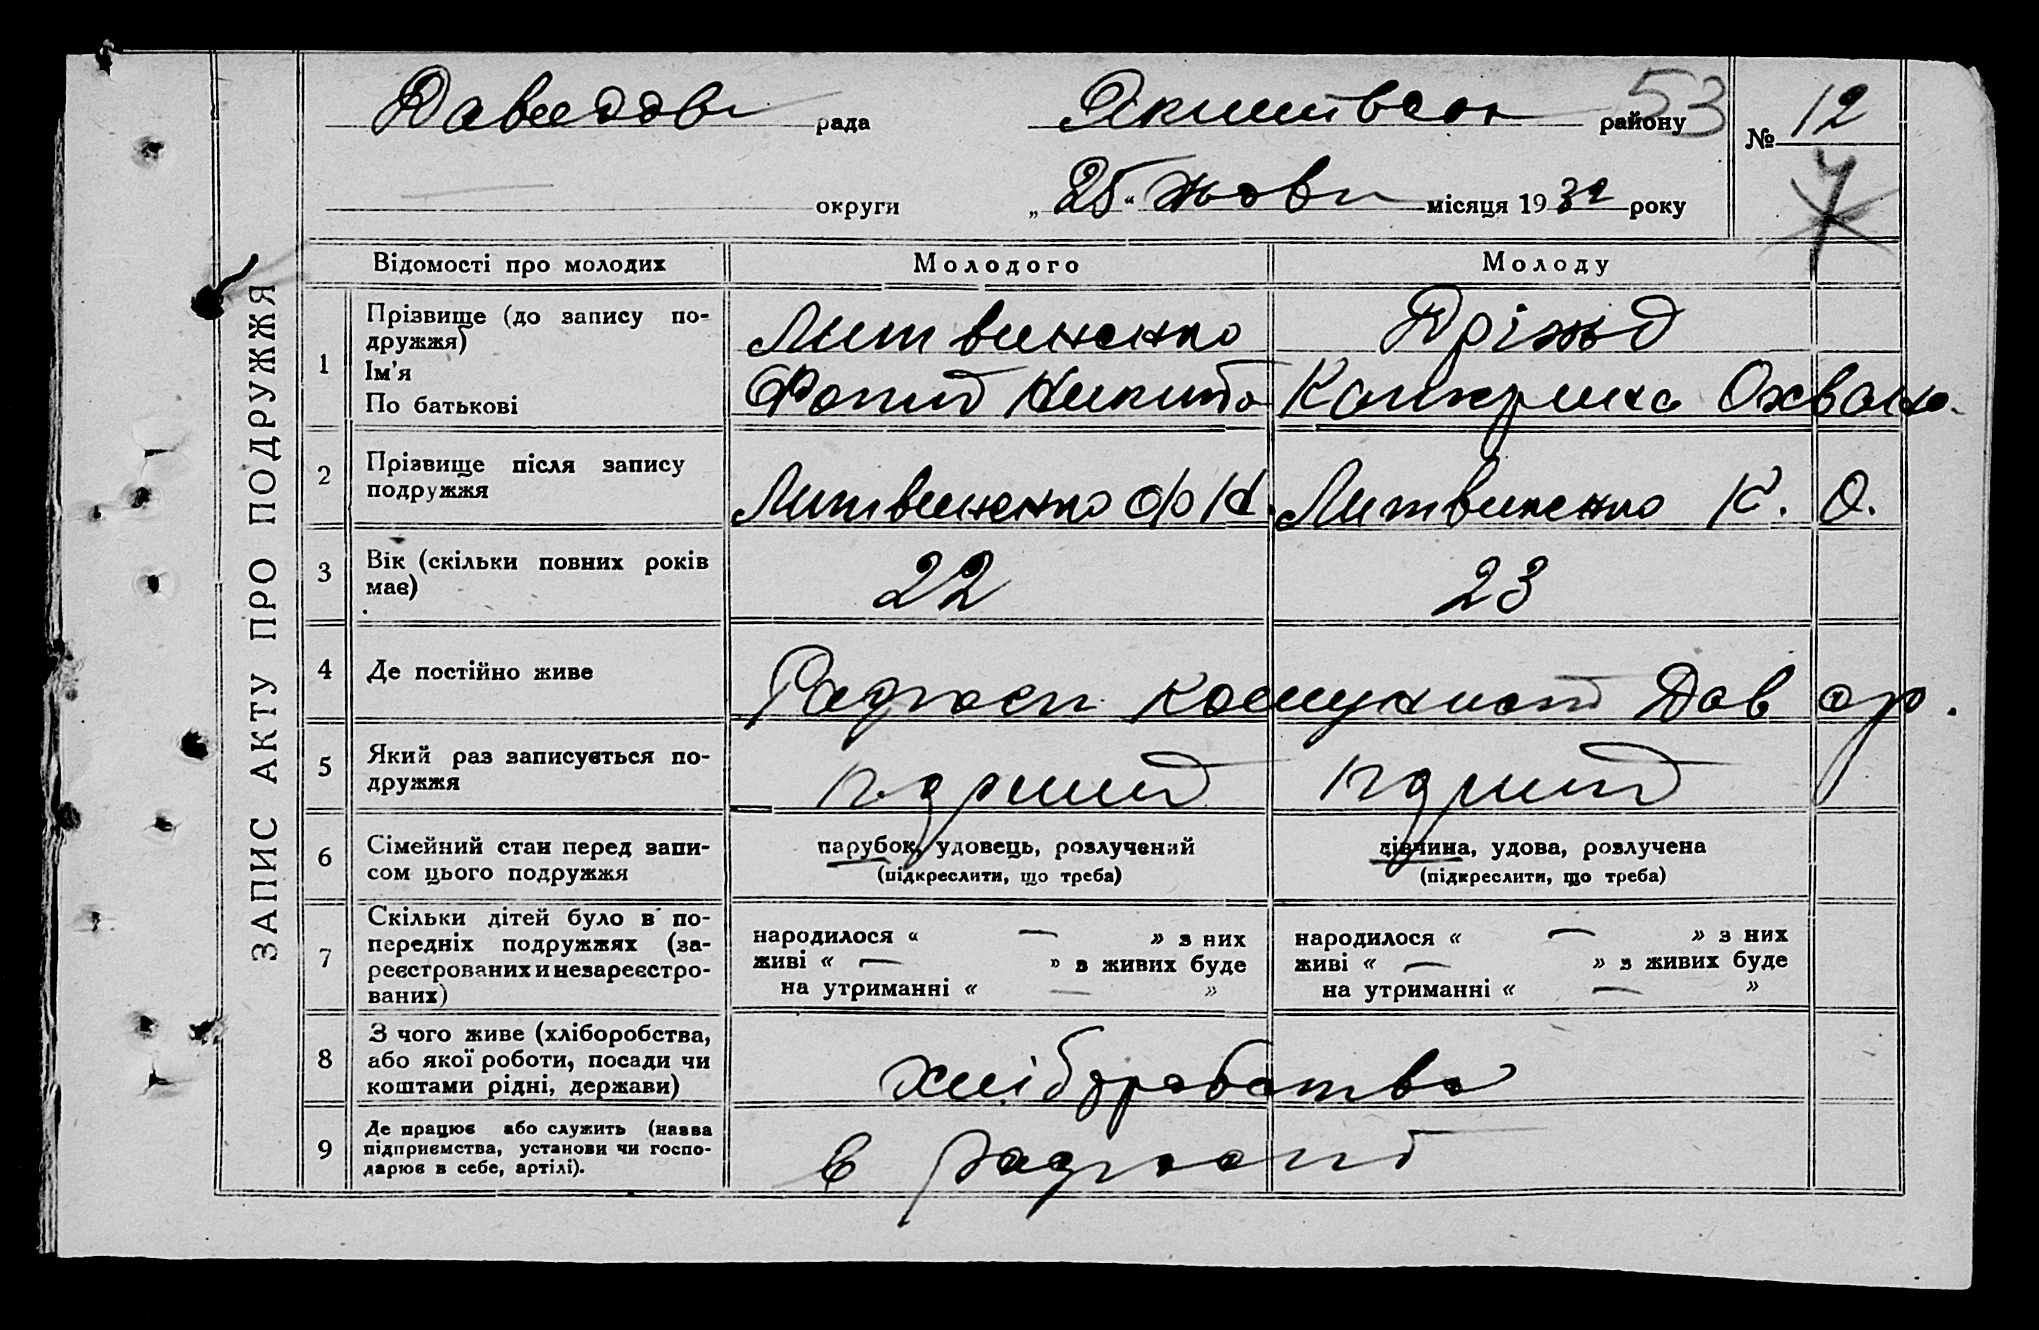 53
Давидов рада Якимівськ району № 12
7
округи „25“ жовтн місяця 1932 року
ЗАПИС АКТУ ПРО ПОДРУЖЖЯ
Відомості про молодих Молодого Молоду
1 Прізвище (до запису по-
дружжя) Литвиненко Дріжд
Ім’я
По батькові Фотий Никито Катерина Охвана.
2 Прізвище після запису
подружжя Литвиненко Ф Н. Литвиненко К. О.
3 Вік (скільки повних років
має) 22 23
4 Де постійно живе Радгосп Комуніст Дав ср.
5 Який раз записується по-
дружжя перший перший
6 Сімейний стан перед запи-
сом цього подружжя
парубок, удовець, розлучений
(підкреслити, що треба)
дівчина, удова, розлучена
(підкреслити, що треба)
7 Скільки дітей було в по-
передніх подружжях (за-
реєстрованих и незареєстро-
ваних)
народилося « — » з них
живі « — » з живих буде
на утриманні « — »
народилося « — » з них
живі « — » з живих буде
на утриманні « — »
8 З чого живе (хліборобства,
або якої роботи, посади чи
коштами рідні, держави)
хліборобство
9 Де працює або служить (назва
підприємства, установи чи госпо-
дарює в себе, артілі).
в радгоспі